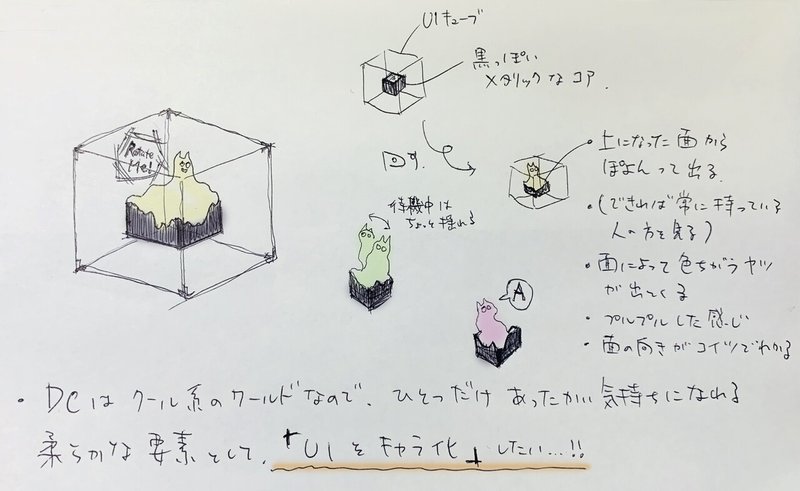 UIキューブ
黒っぽい
メタリックなコア.
Rotate
Me!
回す.
待機中は
ちょっと揺れる
A
・上になった面から
ぽよんって出る.
・(できれば常に持っている
人の方を見る)
・面によって色ちがうヤツ
が出てくる
・プルプルした感じ
・面の向きがコイツでわかる
・DCはクール系のワールドなので、ひとつだけあったかい気持ちになれる
柔らかな要素として、「UIをキャラ化」したい…!!